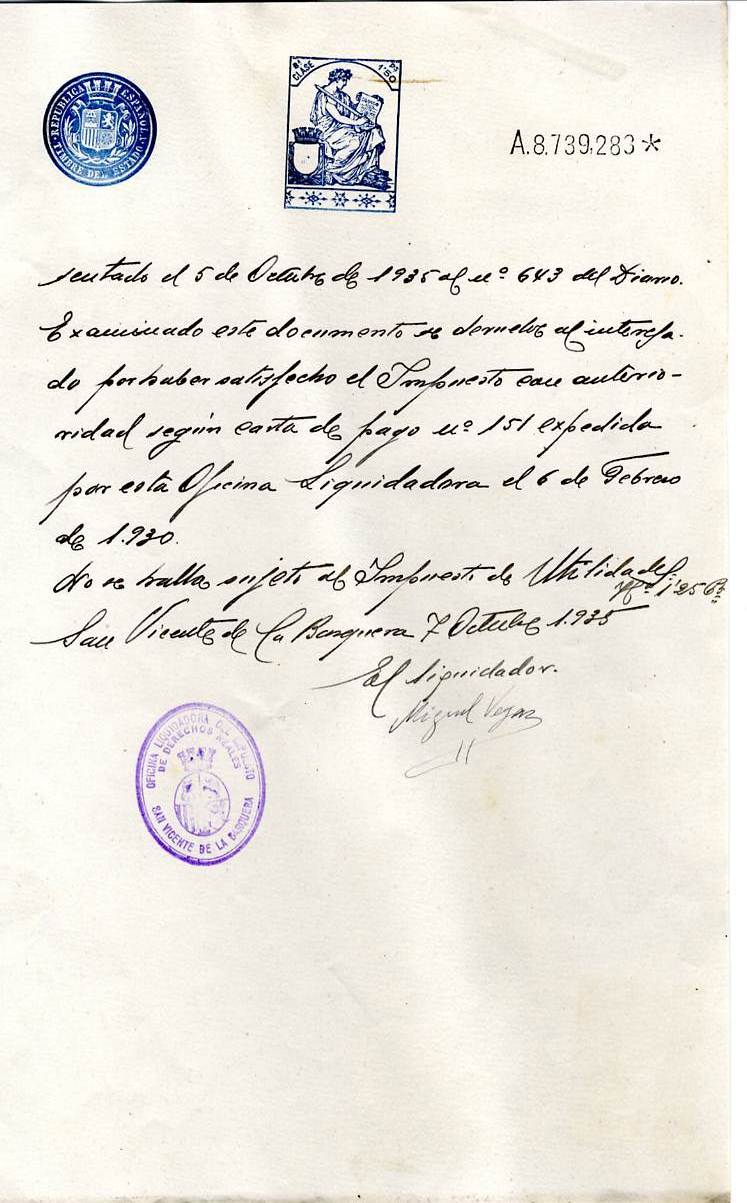 REPUBLICA ESPAÑOLA
TIMBRE DEL ESTADO
8ª CLASE
1'50
A.8.739,283*
sentado el 5 de Octubre de 1935 al nº 643 del Diario.
Examinado este documento se devuelve al interesa-
do por haber satisfecho el Impuesto con anterio-
ridad según carta de pago nº 151 expedida
por esta Oficina Liquidadora el 6 de Febrero
de 1.930.
No se halla sujeto al Impuesto de Utilidades.
1'25
San Vicente de la Barquera 7 Octubre 1.935
El liquidador.
Miguel
OFICINA LIQUIDADORA DEL IMPUESTO
DE DERECHOS REALES
SAN VICENTE DE LA BARQUERA